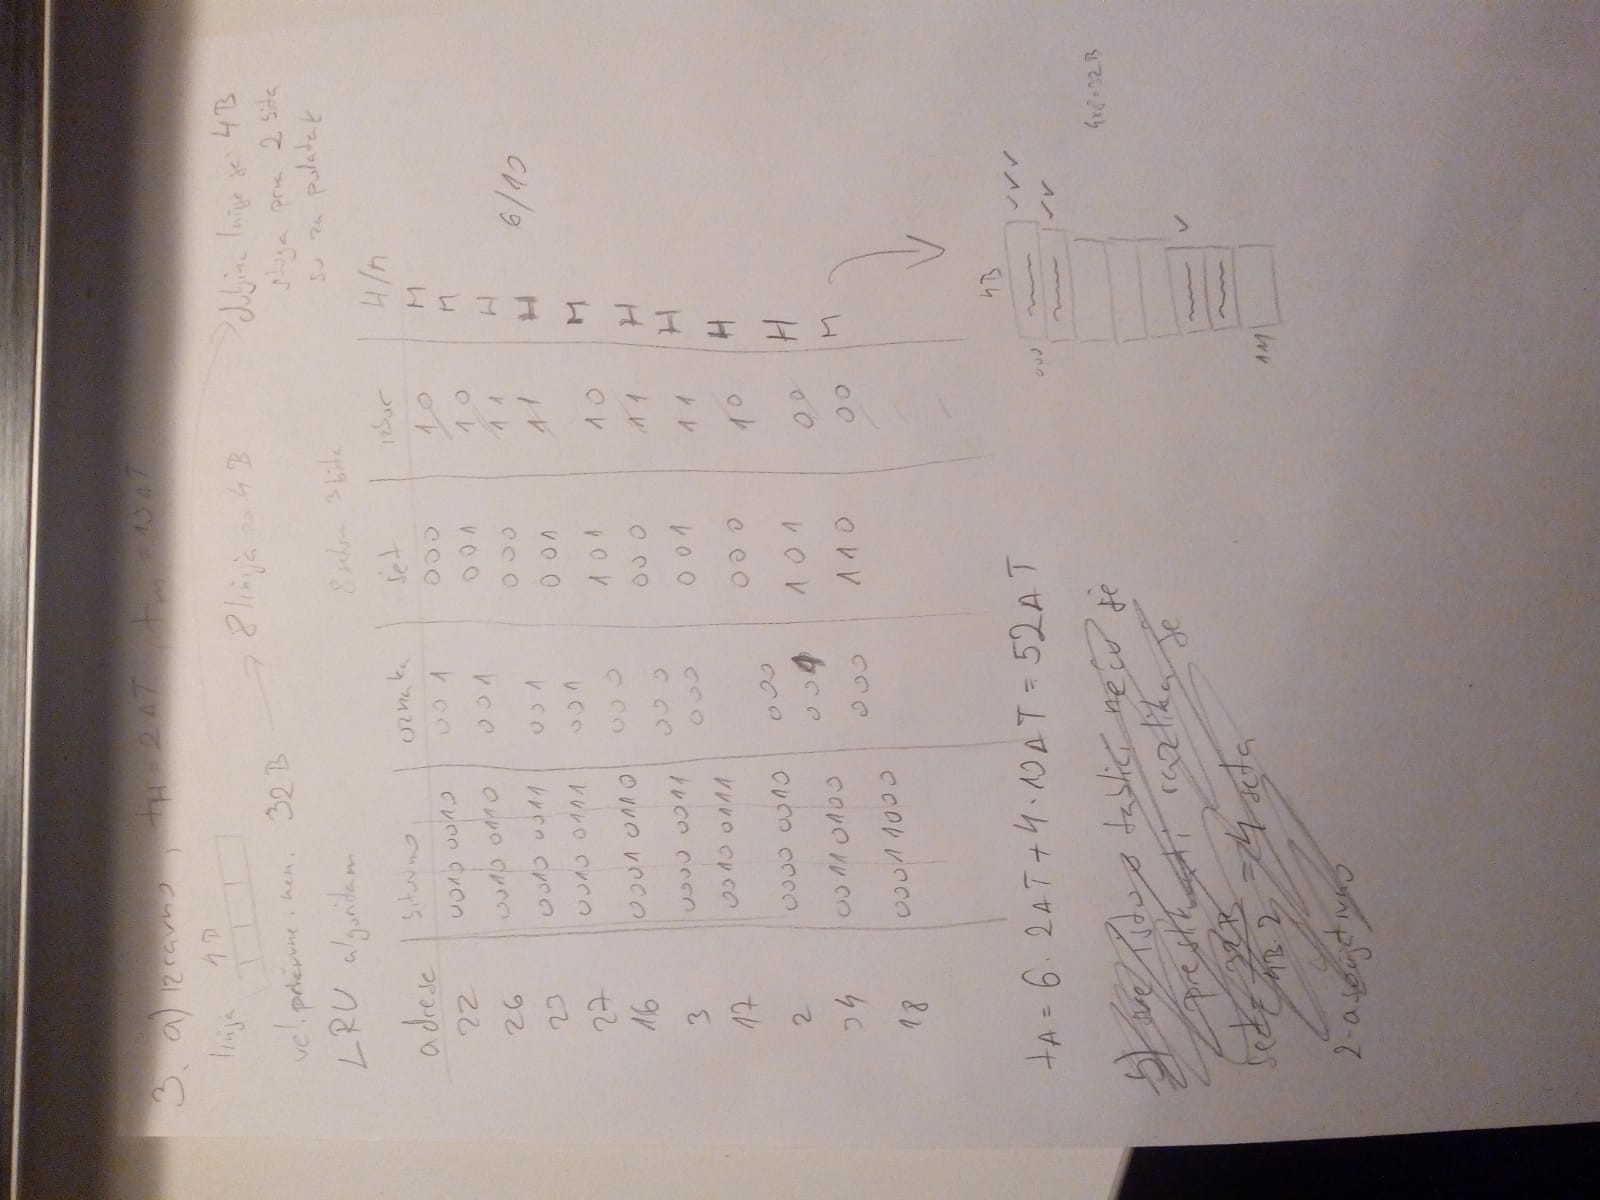 3. a) izravno, tH = 2ΔT, tm = 10ΔT
linija 4B
vel. priručne. mem. 32B → 8 linija po 4B → duljina linije je 4B
stoga prva 2 bita
su za podatak
LRU algoritam
8 setova 3 bita
adrese bitovno oznaka set izbor H/M
22 0010 0010 001 000 10 M
26 0010 0110 001 001 10 M
23 0010 0011 001 000 11 H
27 0010 0111 001 001 11 H
16 0001 0110 000 101 10 M
3 0000 0011 000 000 11 H
17 0010 0111 000 001 11 H
2 0000 0010 000 000 10 H
34 0011 0100 001 101 00 H
18 0001 1000 000 110 00 M
6/10
4B
000
111
4x8=32B
tA = 6 · 2ΔT + 4 · 10ΔT = 52ΔT
b) sve isto tablici neću je
razlika je
= 4 seta
2-asocijativno